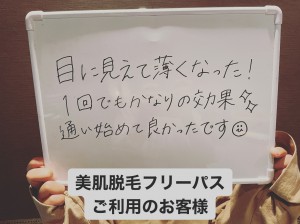 目に見えて薄くなった!
1回でもかなりの効果✨
通い始めて良かったです☺
美肌脱毛フリーパス
ご利用のお客様